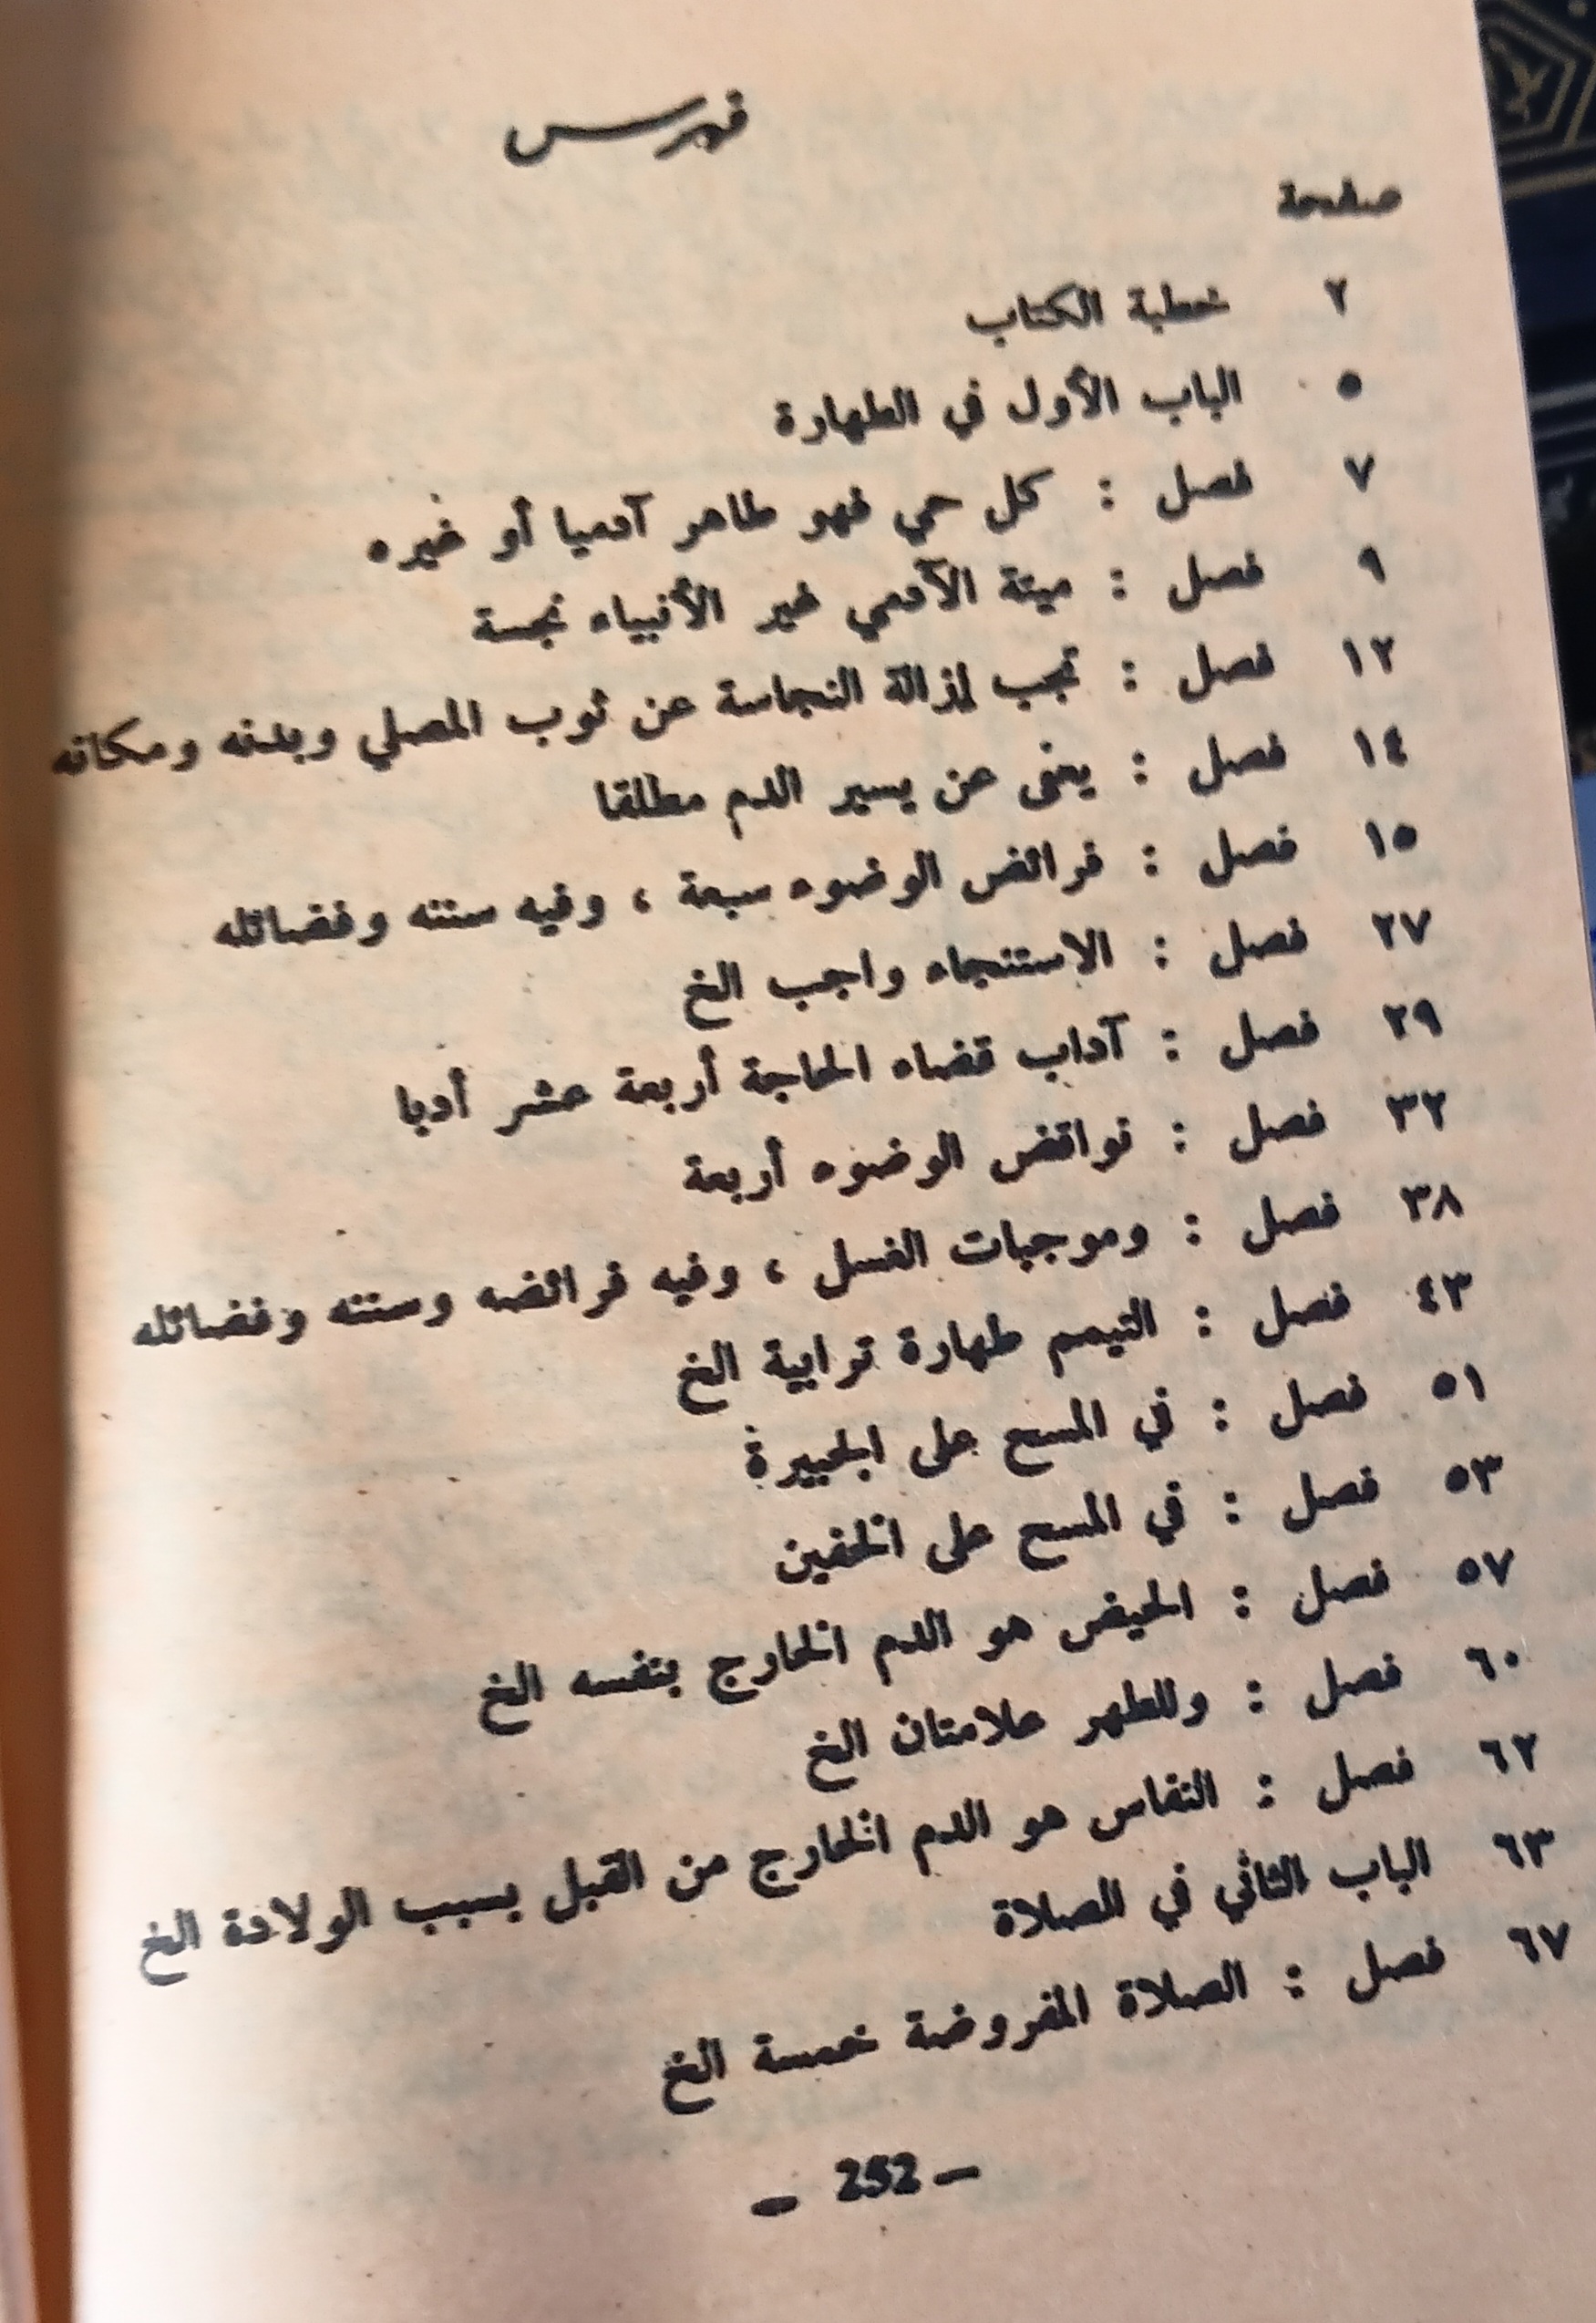 فهرس
صفحة
٢ خطبة الكتاب
٥ الباب الأول في الطهارة
٧ فصل : كل حي فهو طاهر آدميا أو غيره
٩ فصل : ميتة الآدمي غير الأنبياء نجسة
١٢ فصل : تجب إزالة النجاسة عن ثوب المصلي وبدنه ومكانه
١٤ فصل : يعفى عن يسير الدم مطلقا
١٥ فصل : فرائض الوضوء سبعة ، وفيه سننه وفضائله
٢٧ فصل : الاستنجاء واجب الخ
٢٩ فصل : آداب قضاء الحاجة أربعة عشر أدبا
٣٢ فصل : نواقض الوضوء أربعة
٣٨ فصل : وموجبات الغسل ، وفيه فرائضه وسننه وفضائله
٤٣ فصل : التيمم طهارة ترابية الخ
٥١ فصل : في المسح على الجبيرة
٥٣ فصل : في المسح على الخفين
٥٧ فصل : الحيض هو الدم الخارج بنفسه الخ
٦٠ فصل : وللطهر علامتان الخ
٦٢ فصل : النفاس هو الدم الخارج من القبل بسبب الولادة الخ
٦٣ الباب الثاني في الصلاة
٦٧ فصل : الصلاة المفروضة خمسة الخ
– 252 –